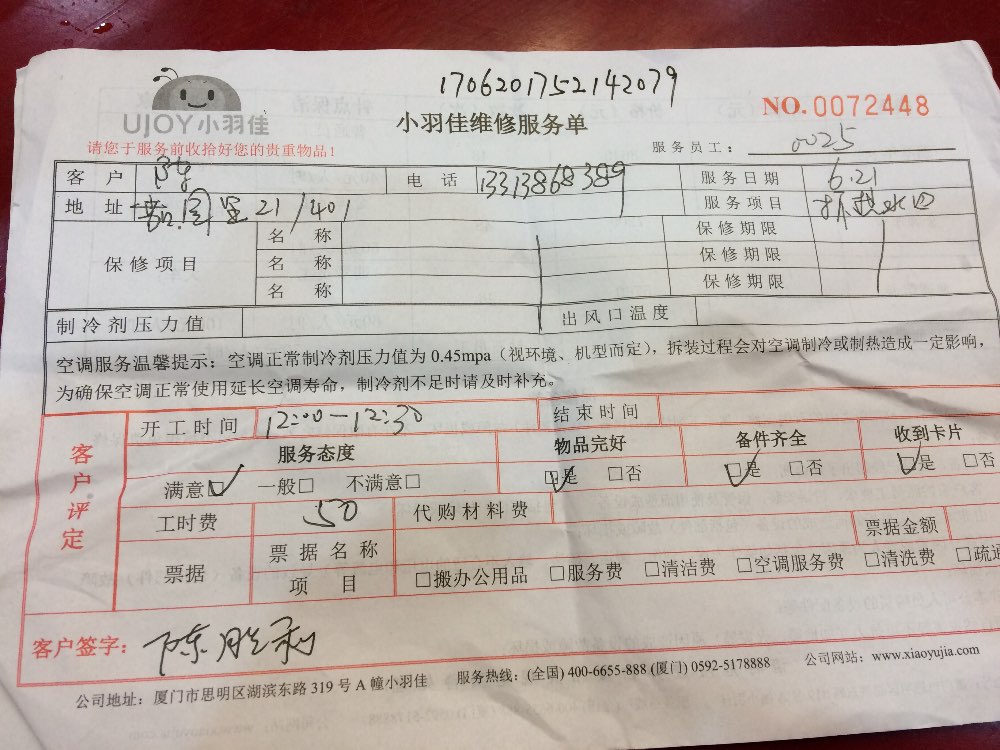 1706201752142079
UJOY小羽佳
小羽佳维修服务单
NO.0072448
请您于服务前收拾好您的贵重物品！
服务员工： 0025
客 户 陈 电 话 13313868389 服务日期 6.21
地 址 21/401 服务项目
保修项目 名 称 保修期限
名 称 保修期限
名 称 保修期限
制冷剂压力值 出风口温度
空调服务温馨提示：空调正常制冷剂压力值为0.45mpa（视环境、机型而定），拆装过程会对空调制冷或制热造成一定影响，
为确保空调正常使用延长空调寿命，制冷剂不足时请及时补充。
客户评定
开工时间 12:00－12:30 结束时间
服务态度 物品完好 备件齐全 收到卡片
满意☑ 一般□ 不满意□ ☑是 □否 ☑是 □否 ☑是 □否
工时费 50 代购材料费
票据 票据名称 票据金额
项 目 □搬办公用品 □服务费 □清洁费 □空调服务费 □清洗费 □疏通
客户签字： 陈胜利
公司地址：厦门市思明区湖滨东路319号A幢小羽佳 服务热线：(全国) 400-6655-888 (厦门) 0592-5178888 公司网站：www.xiaoyujia.com